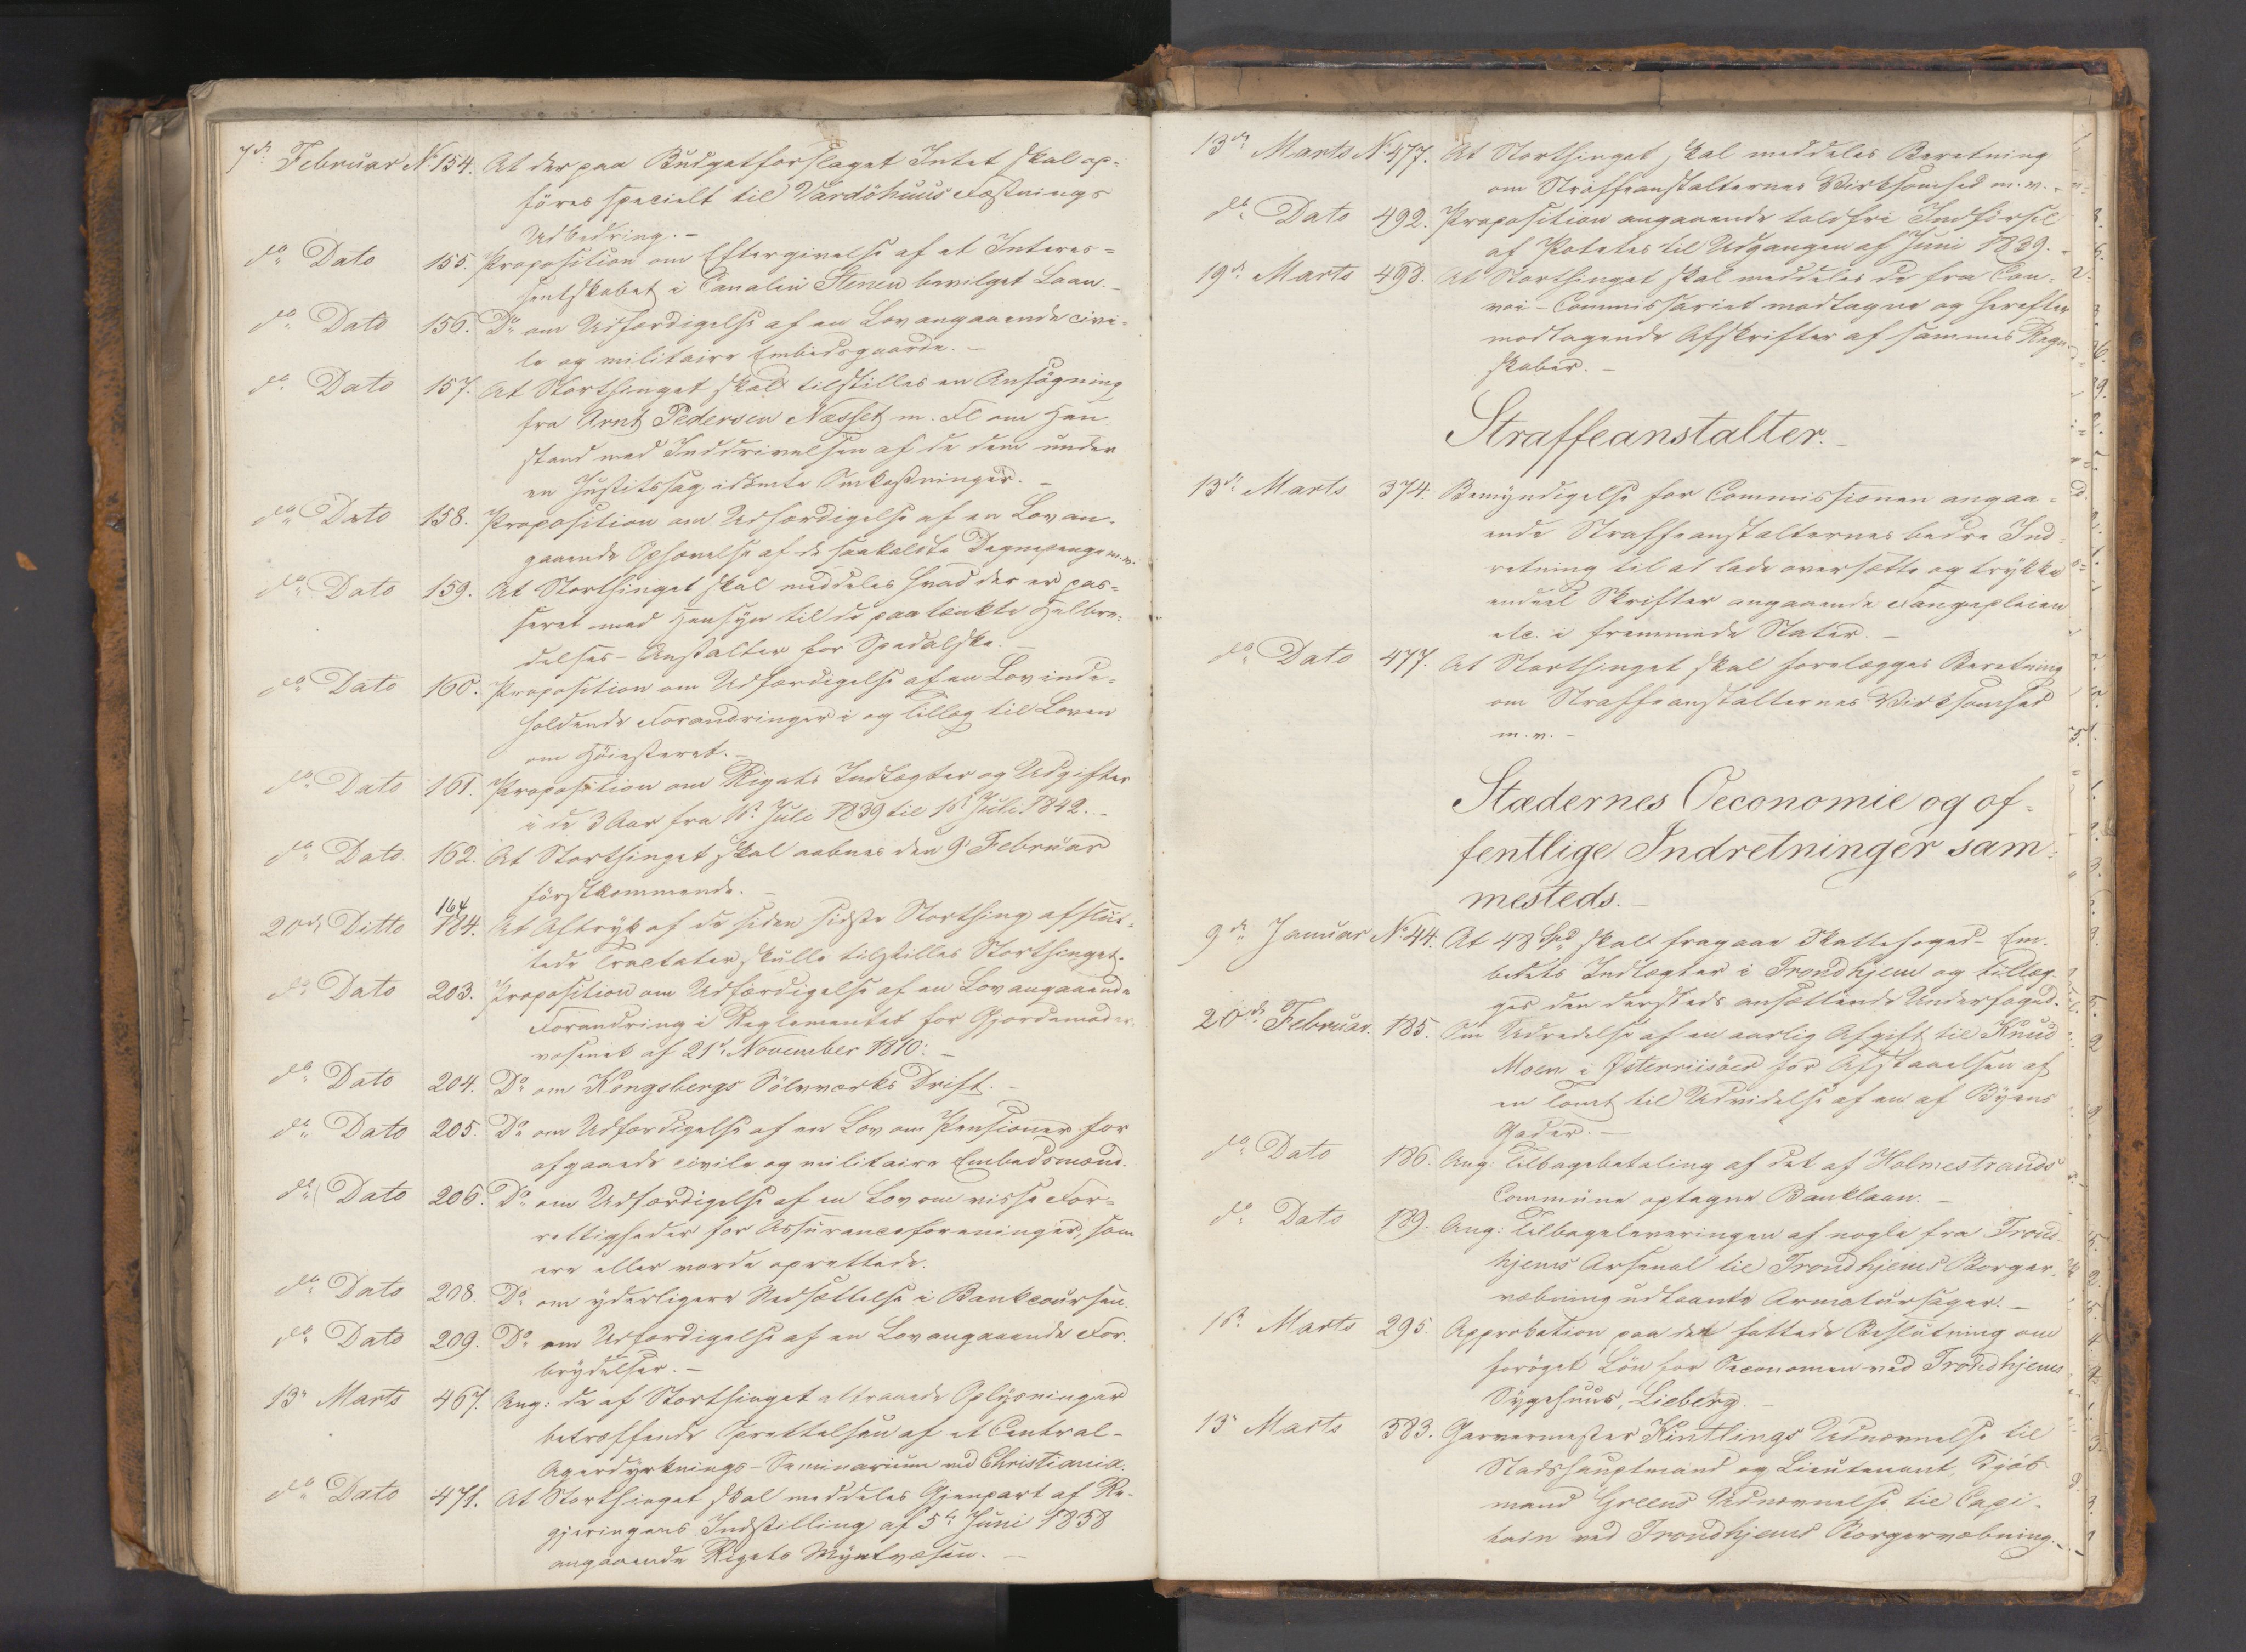 7de Februar No 154. At der paa Budgetforslaget Intet skal op-
föres specielt til Vardöhuus Fæstnings
Udbedring. -
do Dato 155. Proposition om Eftergivelse af et Interes-
sentskabet i Canalen Stenen bevilget Laan. -
do Dato 156. Do om Udfærdigelse af en Lov angaaende civi-
le og militaire Embedsgaarde. -
do Dato 157. At Storthinget skal tilstilles en Ansögning
fra Arnt Pedersen Næsset m. Fl om Hen-
stand med Inddrivelsen af de dem under
en Justitssag idömte Omkostninger. -
do Dato 158. Proposition om Udfærdigelse af en Lov an-
gaaende Ophævelse af de saakaldte Degnepenge m.v.
do Dato 159. At Storthinget skal meddeles hvad der er pas-
seret med Hensyn til de paatænkte Helbre-
delses-Anstalter for Spedalske. -
do Dato 160. Proposition om Udfærdigelse af en Lov inde-
holdende Forandringer i og Tillæg til Loven
om Höiesteret. -
do Dato 161. Proposition om Rigets Indtægter og Udgifter
i de 3 Aar fra 1ste Juli 1839 til 1ste Juli 1842. -
do Dato 162. At Storthinget skal aabnes den 9de Februar
förstkommende. -
164
20de Ditto 184. At Aftryk af de siden sidste Storthing afslut-
tede Tractater skulle tilstilles Storthinget.
do Dato 203. Proposition om Udfærdigelse af en Lov angaaende
Forandring i Reglementet for Gjordemoder-
væsenet af 21de November 1810: -
do Dato 204. Do om Kongsbergs Sölvværks Drift. -
do Dato 205. Do om Udfærdigelse af en Lov om Pensioner for
afgaaede civile og militaire Embedsmænd.
do Dato 206. Do om Udfærdigelse af en Lov om visse For-
rettigheder for Assuranceforeninger, som
ere eller vorde oprettede.
do Dato 208. Do om yderligere Nedsættelse i Bankcoursen.
do Dato 209. Do om Udfærdigelse af en Lov angaaende For-
brydelser. -
13de Marts 467. Ang: de af Storthinget attraaede Oplysninger
betræffende Oprettelsen af et Central-
Agerdyrknings-Seminarium ved Christiania.
do Dato 471. At Storthinget skal meddeles Gjenpart af Re-
gjeringens Indstilling af 5te Juni 1838
angaaende Rigets Myntvæsen. -
13de Marts No 477. At Storthinget skal meddeles Beretning
om Straffeanstalternes Virksomhed m. v. -
do Dato 492. Proposition angaaende toldfri Indförsel
af Potetes til Udgangen af Juni 1839. -
19de Marts 498. At Storthinget skal meddeles de fra Con-
voi-Commissariet modtagne og herefter
modtagende Afskrifter af sammes Regn-
skaber. -
Straffeanstalter. -
13de Marts 374. Bemyndigelse for Commissionen angaa-
ende Straffeanstalternes bedre Ind-
retning til at lade oversætte og trykke
endeel Skrifter angaaende Fangepleien
etc. i fremmede Stater. -
do Dato 477. At Storthinget skal forelægges Beretning
om Straffeanstalternes Virksomhed
m. v. -
Stædernes Oeconomie og of-
fentlige Indretninger sam-
mesteds. -
9de Januar No 44. At 48 Spd skal fragaae Skattefoged-Em-
bedets Indtægter i Trondhjem og tillæg-
ges den dersteds ansættende Underfoged.
20de Februar. 185. Om Udredelse af en aarlig Afgift til Knud
Moen i Østerriisöer for Afstaaelsen af
en Tomt til Udvidelse af en af Byens
Gader. -
do Dato 186. Ang: Tilbagebetaling af det af Holmestrands
Commune optagne Banklaan. -
do Dato 189. Ang: Tilbageleveringen af nogle fra Trond-
hjems Arsenal til Trondhjems Borger-
væbning udlaante Armatursager. -
1ste Marts 295. Approbation paa den fattede Beslutning om
foröget Lön for Oeconomen ved Trondhjems
Sygehuus, Lieberg. -
13de Marts 383. Garvermester Kintlings Udnævnelse til
Stadshauptmand og Lieutenant, Kjöb-
mand Greens Udnævnelse til Capi-
tain ved Trondhjems Borgervæbning. -